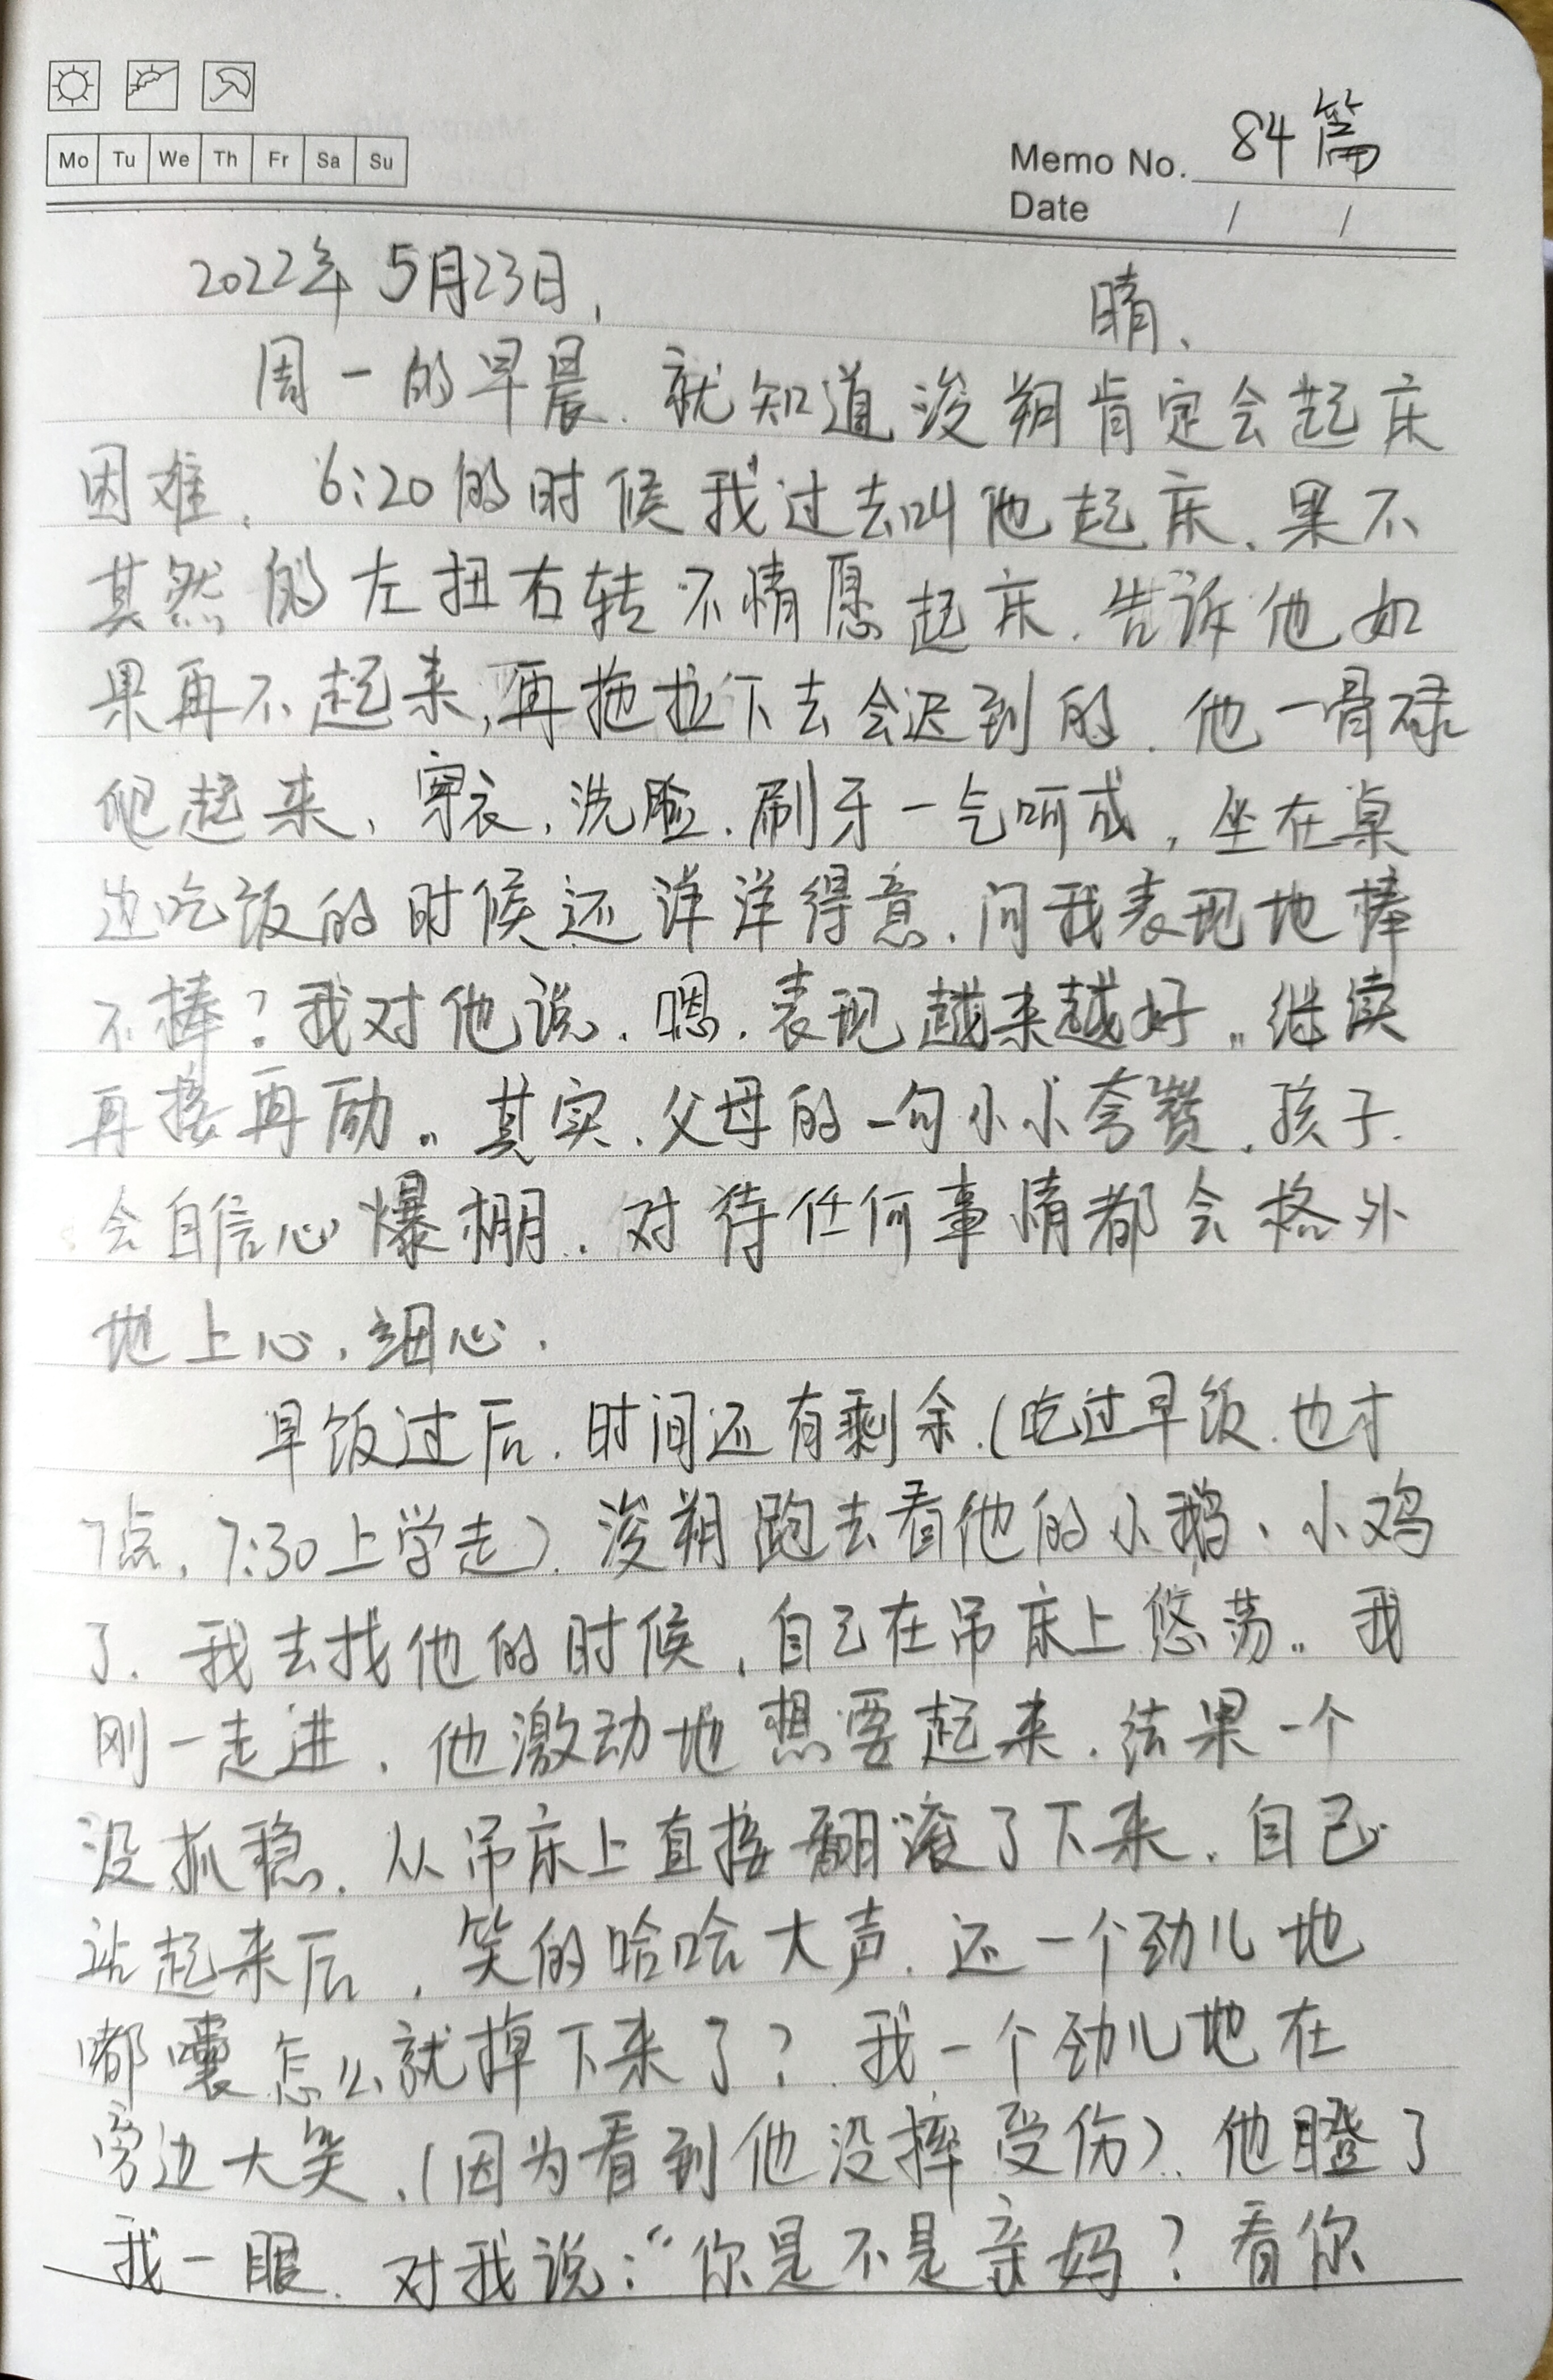 Mo Tu We Th Fr Sa Su
Memo No. 84篇
Date / /
2022年5月23日, 晴、
周一的早晨.就知道浚朔肯定会起床
困难、6:20的时候我过去叫他起床、果不
其然的左扭右转不情愿起床.告诉他如
果再不起来,再拖拉下去会迟到的.他一骨碌
爬起来、穿衣、洗脸、刷牙一气呵成,坐在桌
边吃饭的时候还洋洋得意.问我表现地棒
不棒?我对他说.嗯.表现越来越好。继续
再接再励。其实.父母的一句小小夸赞.孩子.
会自信心爆棚.对待任何事情都会格外
地上心、细心.
早饭过后.时间还有剩余.(吃过早饭.也才
7点,7:30上学走).浚朔跑去看他的小鹅、小鸡
了.我去找他的时候,自己在吊床上悠荡。我
刚一走进、他激动地想要起来.结果一个
没抓稳.从吊床上直接翻滚了下来.自己
站起来后,笑的哈哈大声.还一个劲儿地
嘟囔怎么就掉下来了?我一个劲儿地在
旁边大笑.(因为看到他没摔受伤).他瞪了
我一眼.对我说:“你是不是亲妈?看你